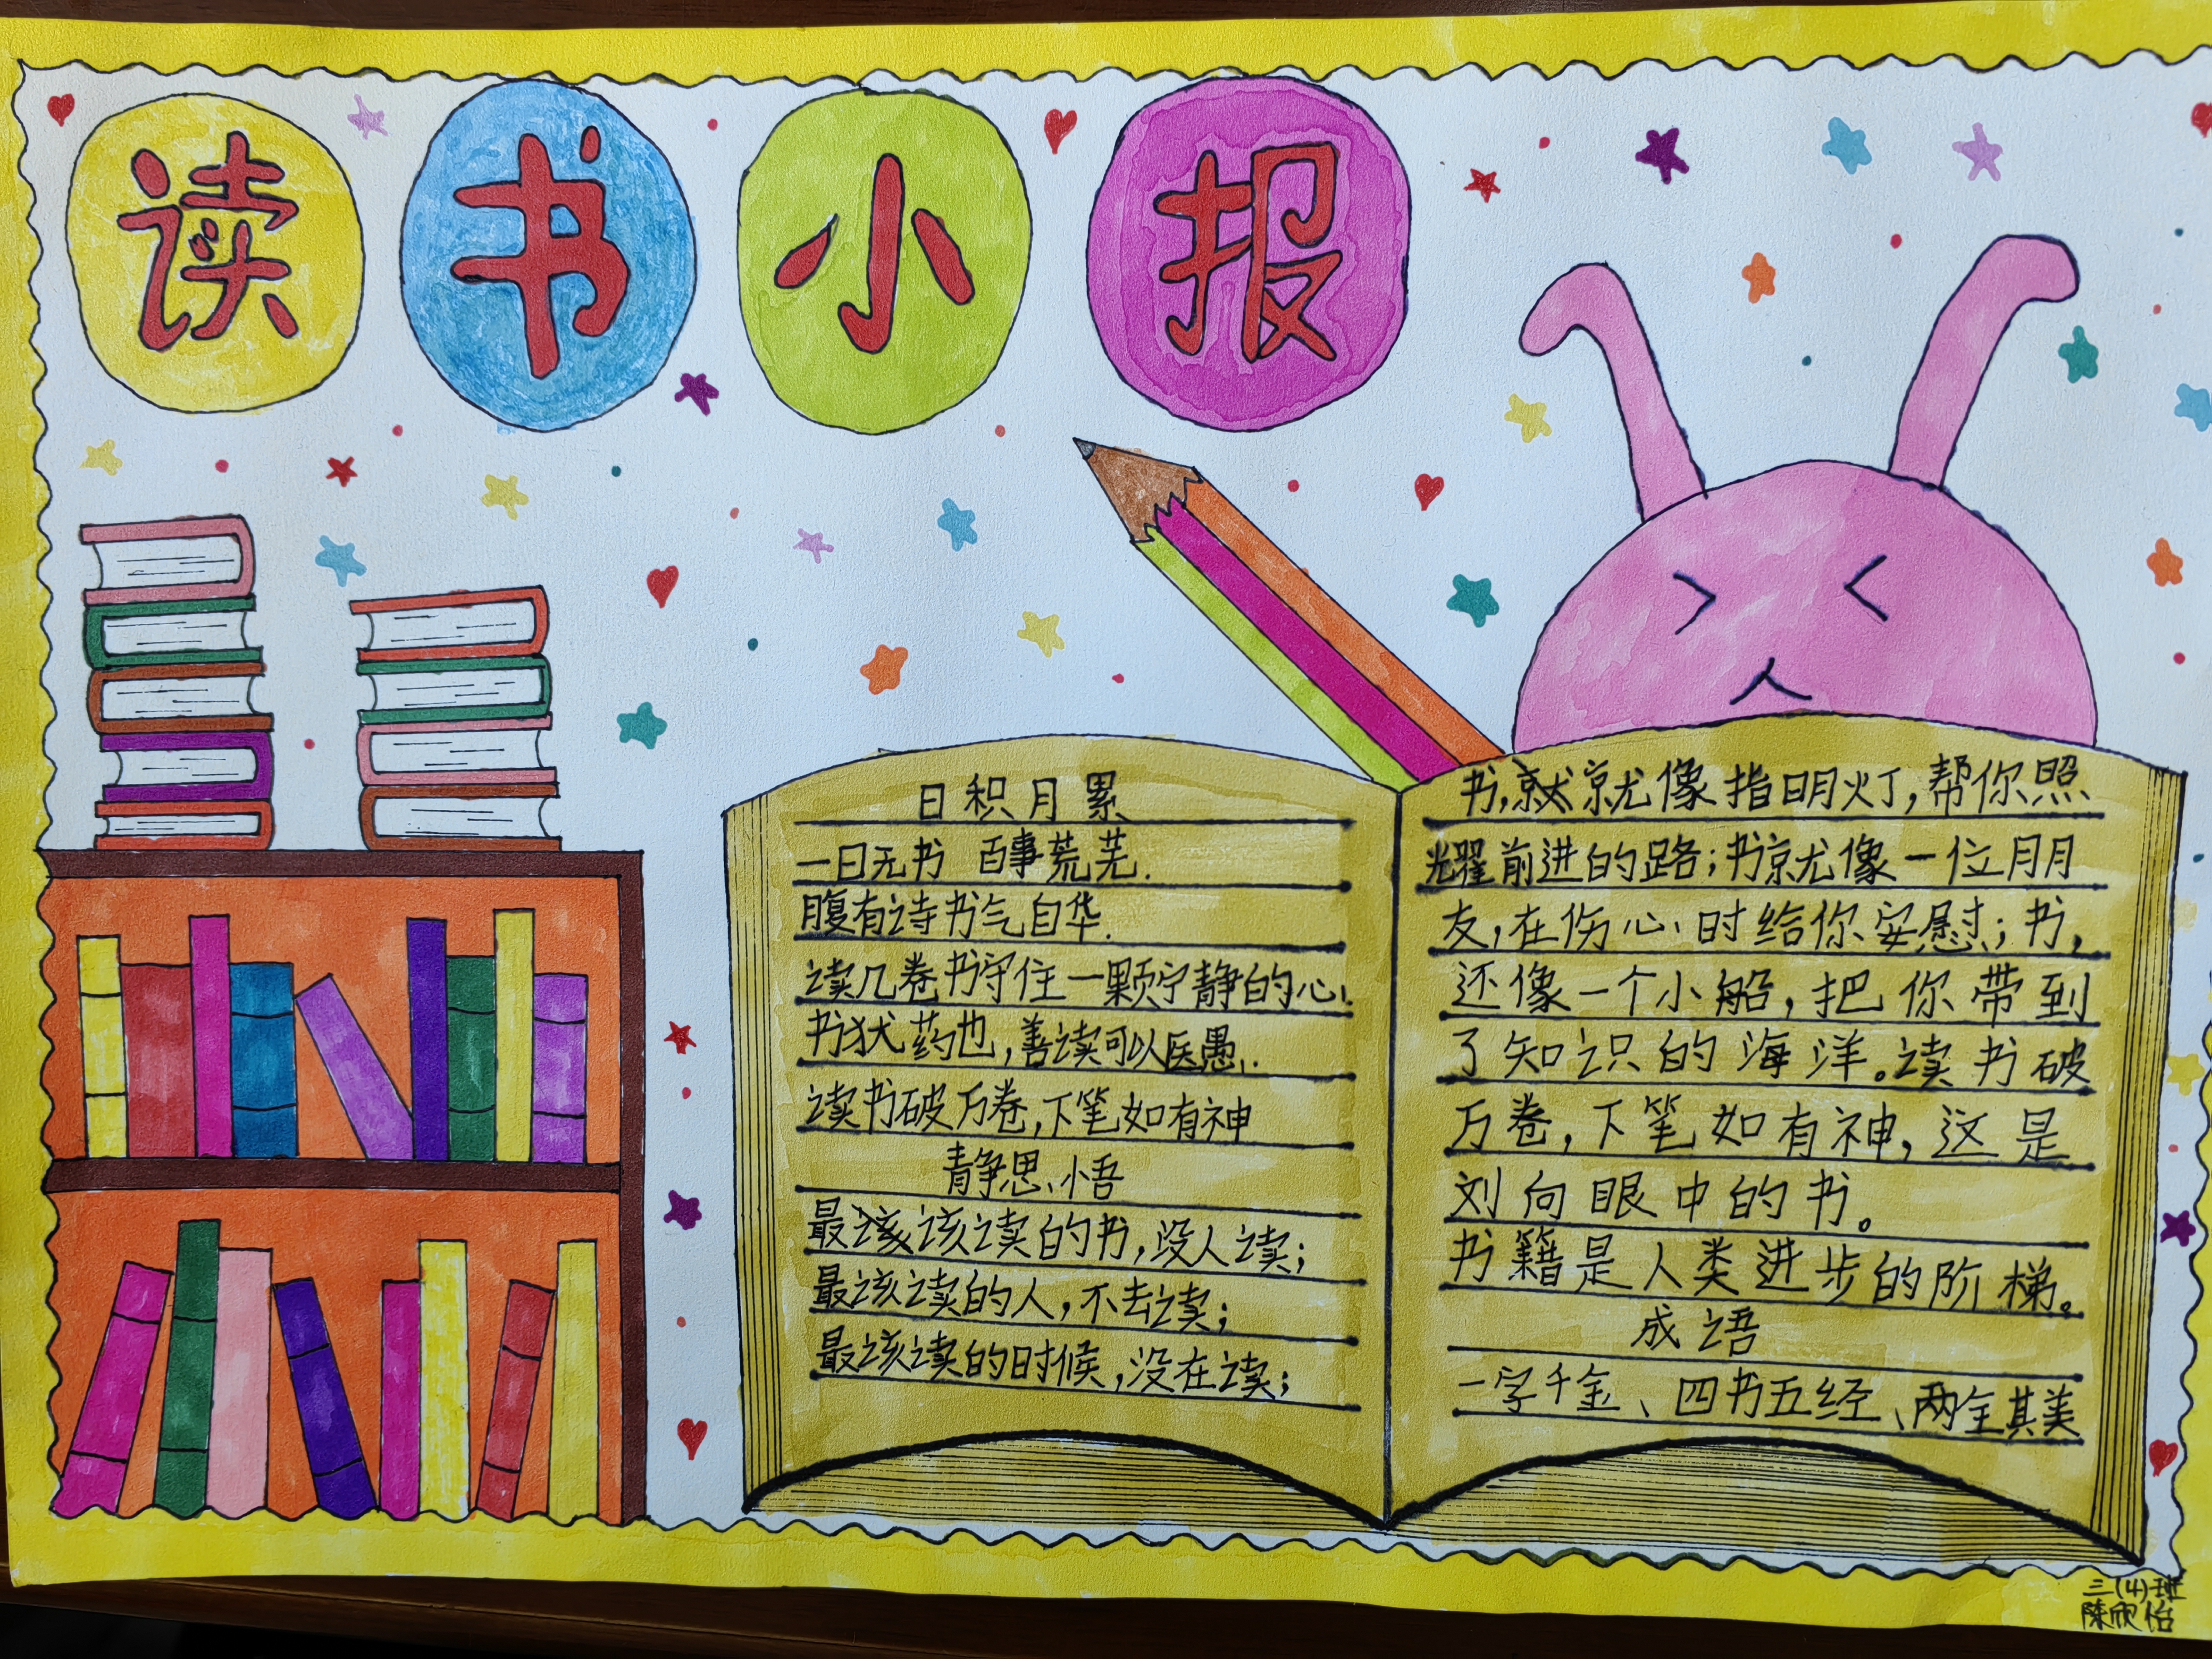 读书小报
日积月累
一日无书 百事荒芜.
腹有诗书气自华.
读几卷书守住一颗宁静的心.
书犹药也,善读可以医愚.
读书破万卷,下笔如有神
静思小悟
最该读的书,没人读;
最该读的人,不去读;
最该读的时候,没在读;
书,就就像指明灯,帮你照
耀前进的路;书就像一位朋
友,在伤心时给你安慰;书,
还像一个小船,把你带到
了知识的海洋。读书破
万卷,下笔如有神,这是
刘向眼中的书。
书籍是人类进步的阶梯。
成语
一字千金、四书五经、两全其美
三(4)班
陈欣怡